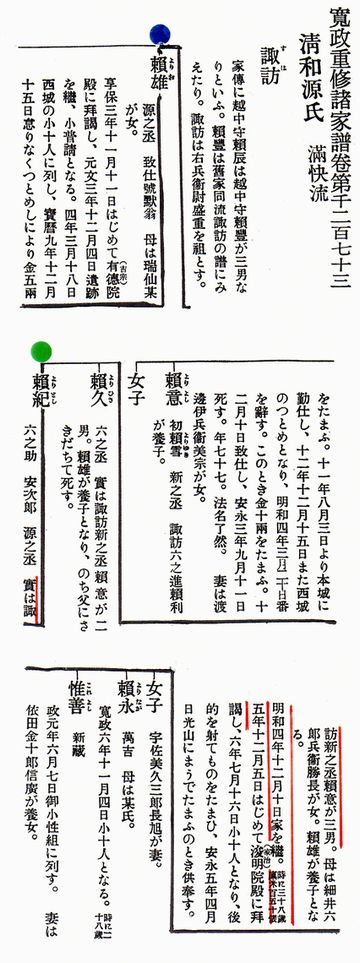 寬政重修諸家譜卷第千二百七十三
淸和源氏 滿快流
諏訪
すは
家傳に越中守賴辰は越中守賴豐が三男な
りといふ。賴豐は舊家同流諏訪の譜にみ
えたり。諏訪は右兵衞尉盛重を祖とす。
賴雄
よりお
源之丞 致仕號默翁 母は瑞仙某
が女。
享保三年十一月十一日はじめて有德院
(吉宗)
殿に拜謁し、元文三年十二月四日遺跡
を繼、小普請となる。四年三月十八日
西城の小十人に列し、寶曆九年十二月
十五日怠りなくつとめしにより金五兩
をたまふ。十一年八月三日より本城に
勤仕し、十二年十二月十五日また西城
のつとめとなり、明和四年三月二十日番
を辭す。このとき金十兩をたまふ。十
二月十日致仕し、安永三年九月十一日
死す。年七十七。法名了然。 妻は渡
邊伊兵衞美宗が女。
賴意
よりもと
初賴雪 新之丞 諏訪六之進賴利
よりゆき
が養子。
女子
賴久
よりひさ
六之丞 實は諏訪新之丞賴意が二
男。賴雄が養子となり、のち父にさ
きだちて死す。
賴紀
よりとし
六之助 安次郞 源之丞 實は諏
訪新之丞賴意が三男。母は細井六
郞兵衞勝長が女。賴雄が養子とな
る。
明和四年十二月十日家を繼。
時に三十八歲
廩米百五十俵
五年十二月五日はじめて浚明院殿に拜
(家治)
謁し、六年七月十六日小十人となり、後
的を射てものをたまひ、安永五年四月
日光山にまうでたまふのとき供奉す。
女子
宇佐美久三郞長旭が妻。
賴永
よりなが
萬吉 母は某氏。
寬政六年十一月四日小十人となる。
時に二十八歲
惟善
これよし
新藏
政元年六月七日御小性組に列す。 妻は
依田金十郞信廣が養女。